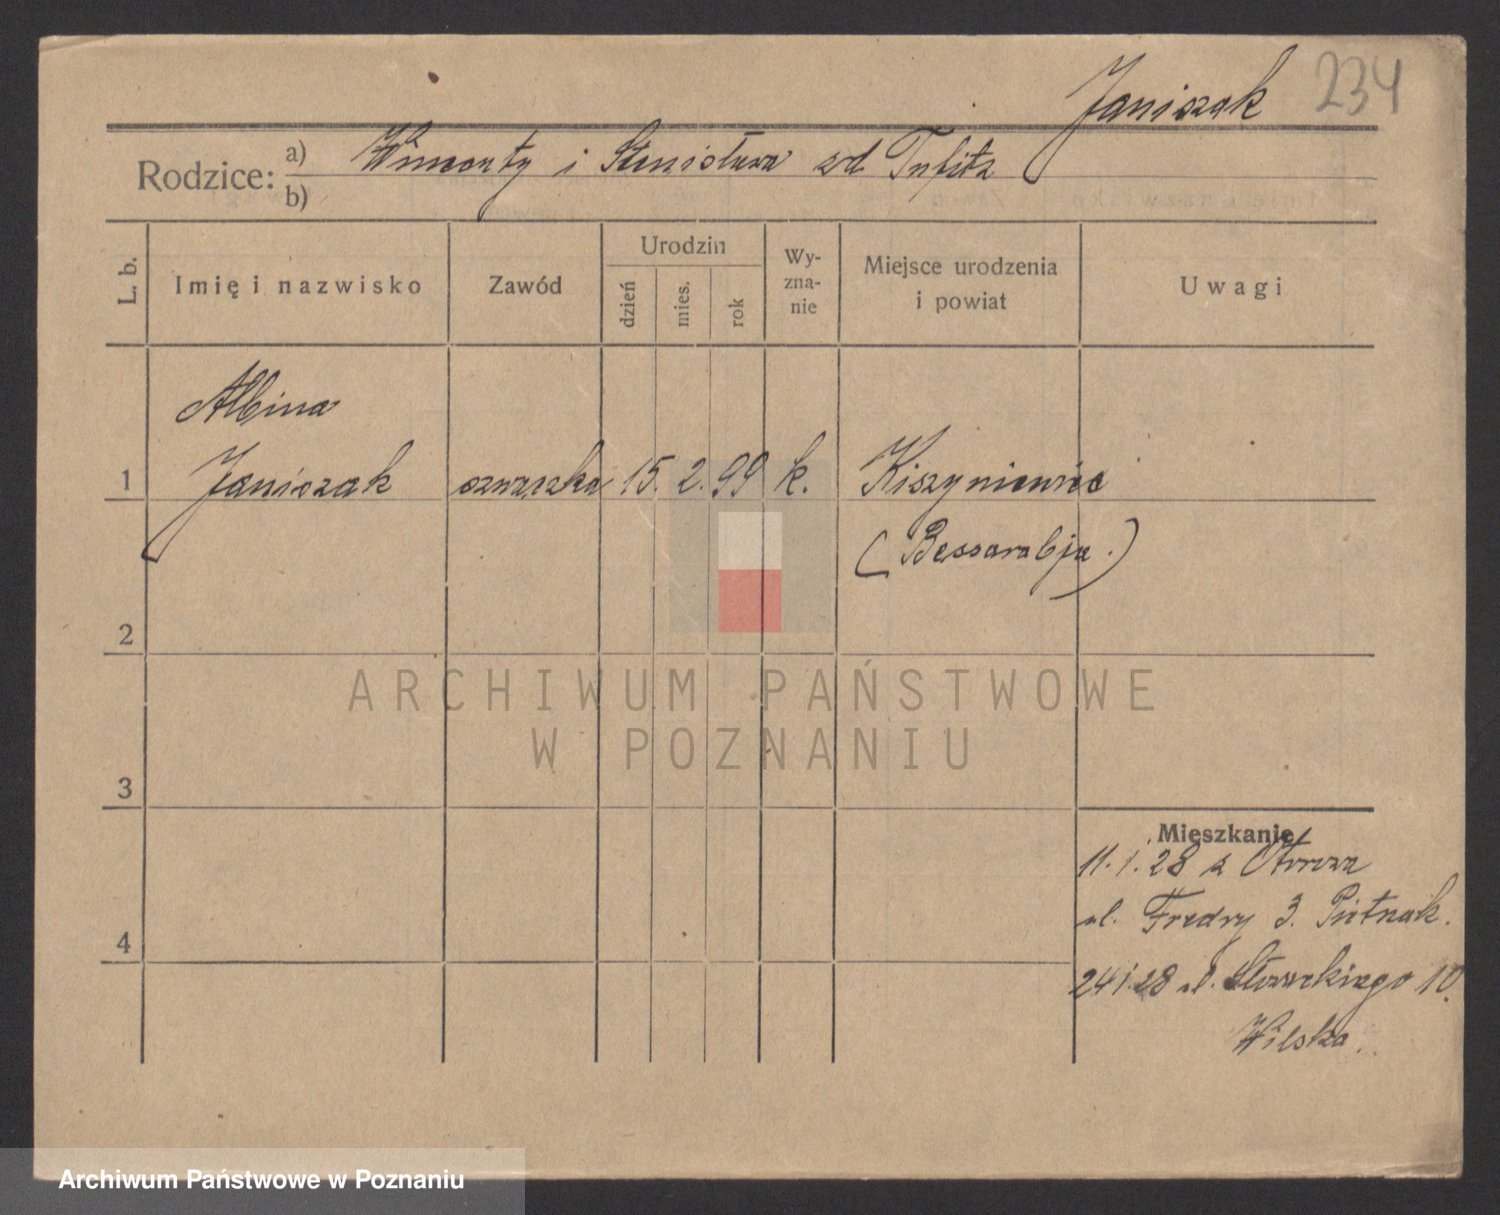 Janiszak 234
Rodzice: a) Wincenty i Stanisława zd.
b)
L. b. Imię i nazwisko Zawód Urodzin dzień mies. rok Wy-zna-nie Miejsce urodzenia i powiat Uwagi
Albina
1 Janiszak 15. 2. 99 k. Kiszyniewie
(Bessarabja.)
2
ARCHIWUM PAŃSTWOWE
W POZNANIU
3
Mieszkanie
11.1.28 z Otorowa
ul. Fredry 3.
4
24 1.28 ul. Słowackiego 10.
Wilska.
Archiwum Państwowe w Poznaniu